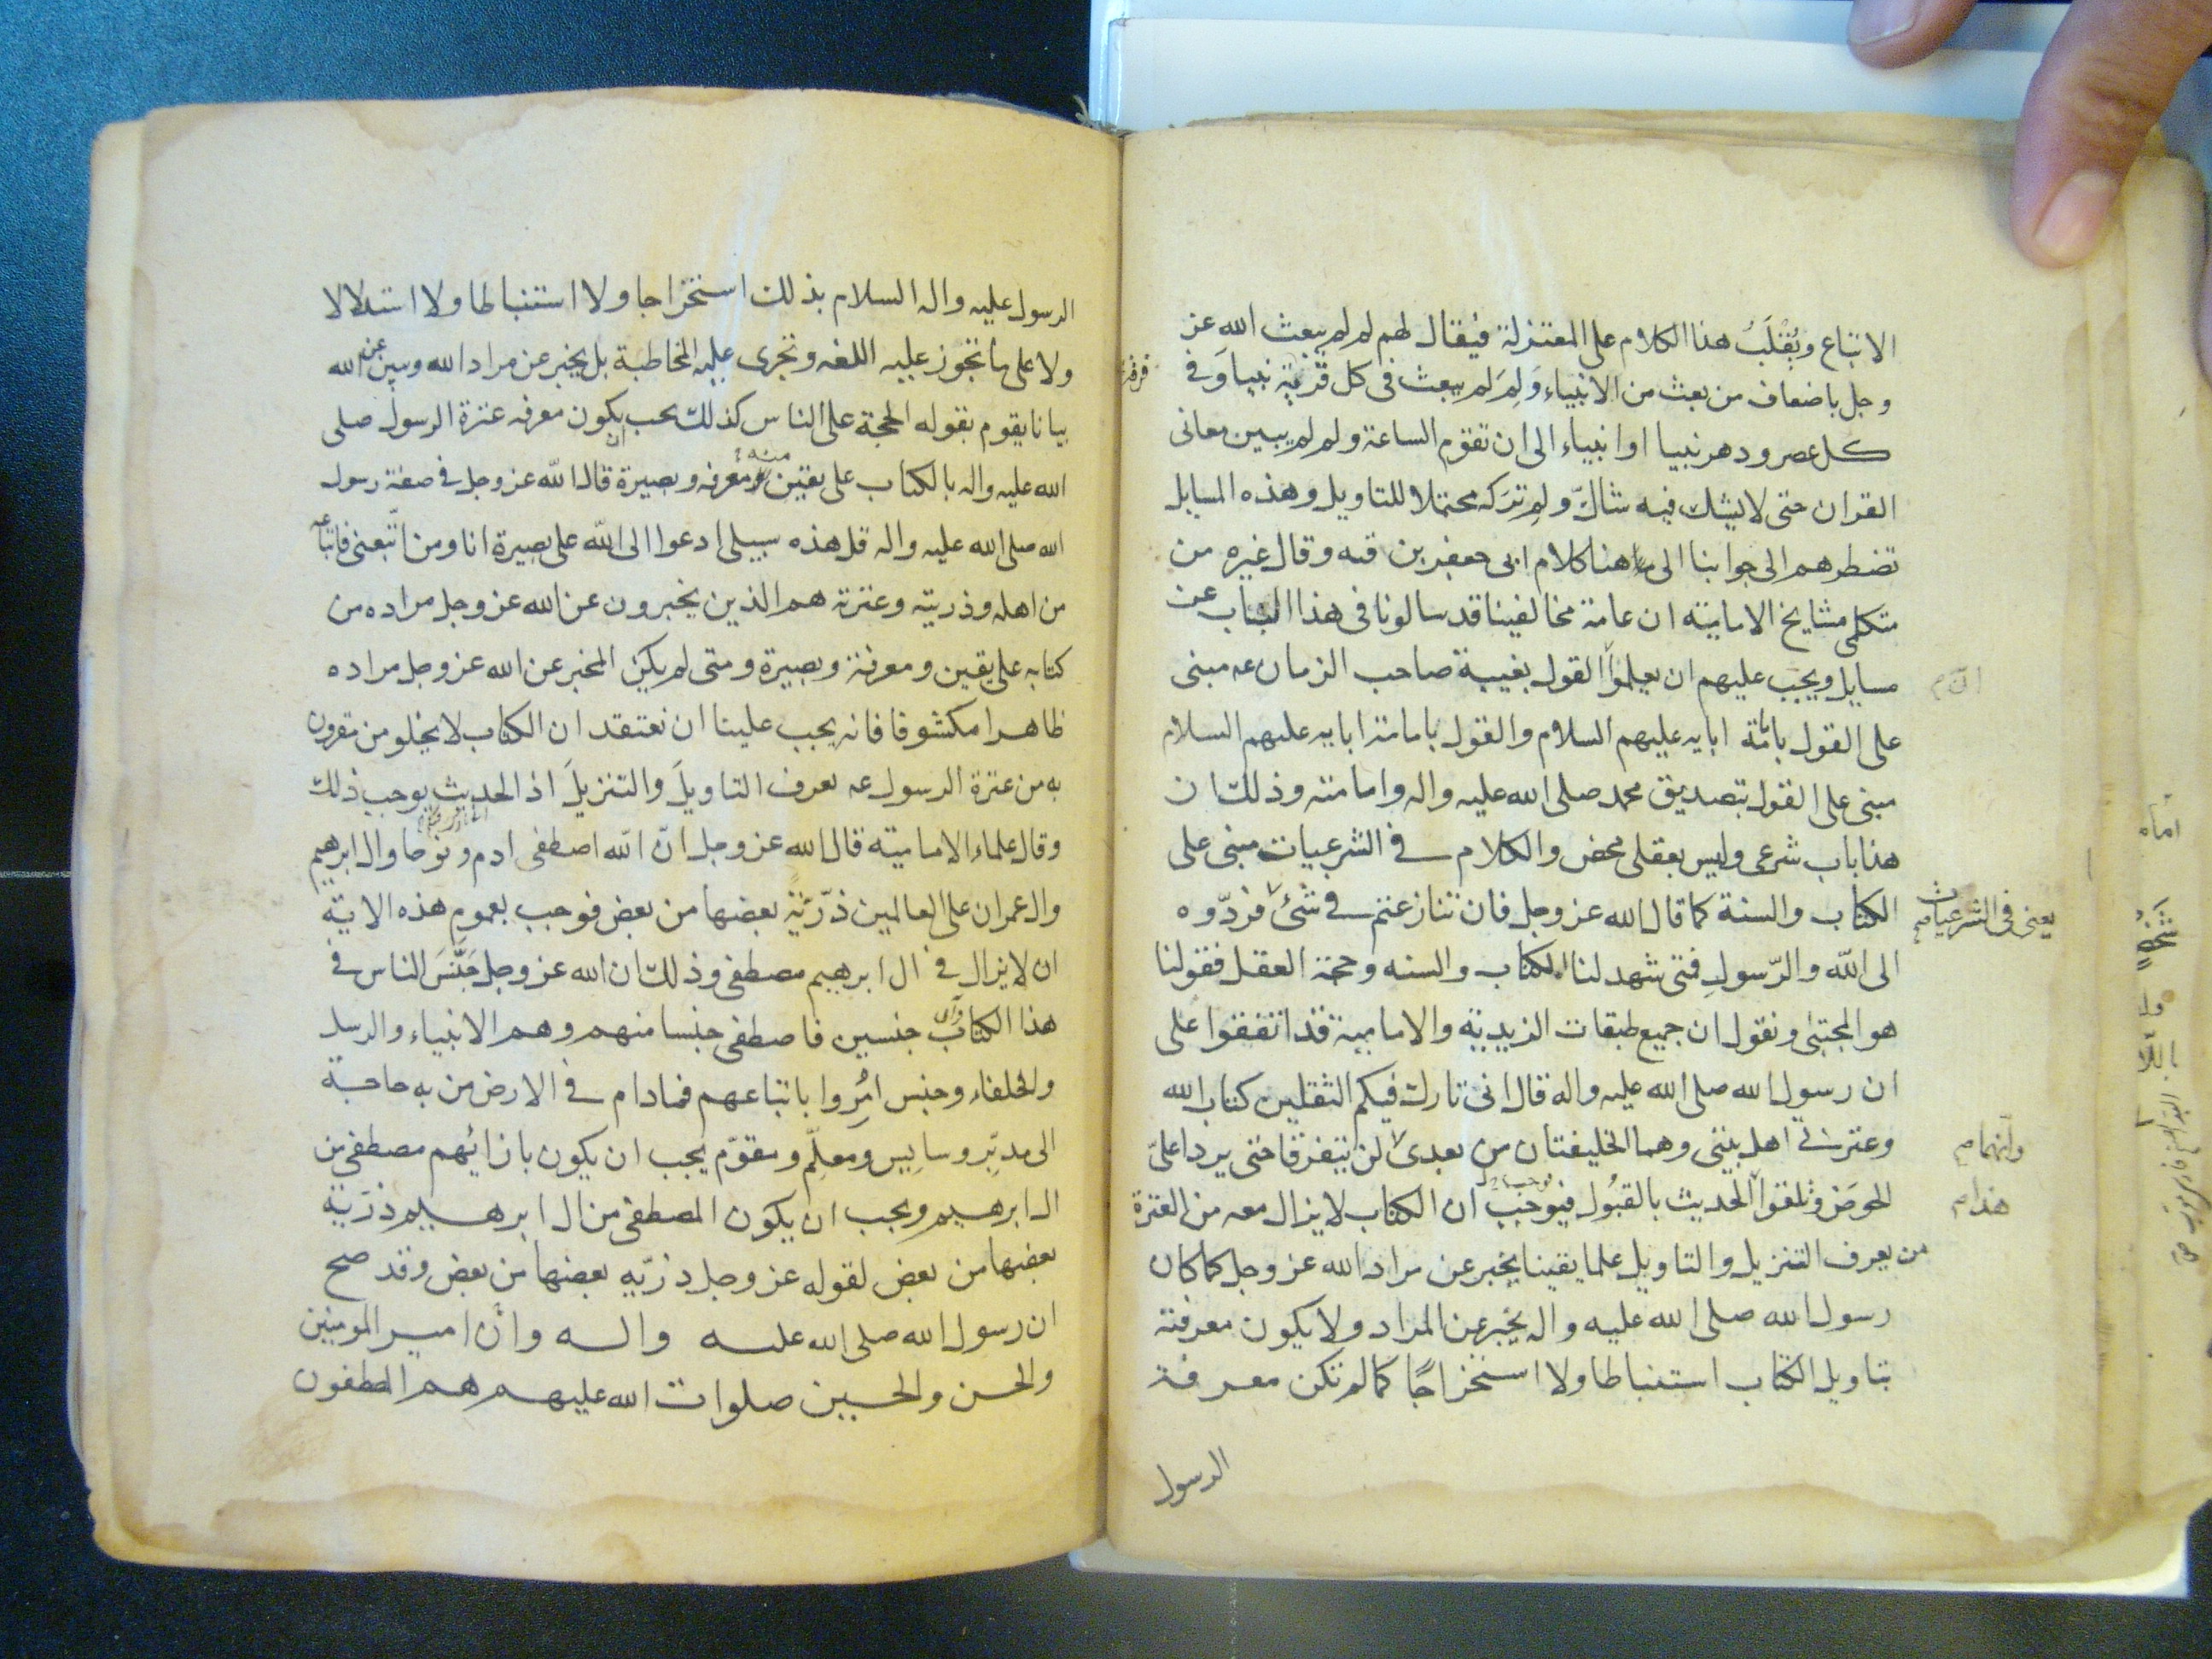 الاتباع ويُقْلَبُ هذا الكلام على المعتزلة فيُقال لهم لم لم يبعث الله عز
وجل باضعاف من بعث من الانبياء وَلِمَ لم يبعث فى كل قرية نبيا وَفى
كل عصر ودهر نبيا او انبياء الى ان تقوم الساعة ولم لم يبين معانى
القران حتى لا يشك فيه شاكّ ولم تركه محتملا للتاويل وهذه المسايل
تضطرهم الى جوابنا الى هاهنا كلام ابى جعفر بن قبه وقال غيره من
متكلمى مشايخ الامامية ان عامة مخالفينا قد سالونا فى هذا الباب عن
مسايل ويجب عليهم ان يعلموا القول بغيبة صاحب الزمان عه مبنى
على القول بامة ابايه عليهم السلام والقول بامامة ابايه عليهم السلام
مبنى على القول بتصديق محمد صلى الله عليه واله وامامته وذلك ان
هذا باب شرعى وليس بعقلى محض والكلام فى الشرعيات مبنى على
الكتاب والسنة كما قال الله عز وجل فان تنازعتم فى شئ فردّوه
يعنى فى الشرعيات
الى الله والرّسولِ فمتى شهد لنا الكتاب والسنه وحجة العقل فقولنا
هو المجتبى ونقول ان جميع طبقات الزيدية والامامية قد اتفقوا على
ان رسول الله صلى الله عليه واله قال انى تارك فيكم الثقلين كتاب الله
وعترتى اهل بيتى وهما الخليفتان من بعدى لن يتفرقا حتى يردا علىّ
وانهما
الحوَض وتلقوا الحديث بالقبُول فيوجب ان الكتاب لا يزال معه من العترة
هذا
من يعرف التنزيل والتاويل علما يقينا يخبر عن مراد الله عز وجل كما كان
رسول الله صلى الله عليه واله يخبر عن المراد ولا يكون معرفته
بتاويل الكتاب استنباطا ولا استخراجًا كما لم تكن معرفة
الرسول
الرسول عليه واله السلام بذلك استخراجا ولا استنباطا ولا استدلالا
ولا على ما تجوز عليه اللغه وتجرى عليه المخاطبة بل يخبر عن مراد الله ويبين عن الله
بيانا يقوم بقوله الحجة على الناس كذلك يجب ان يكون معرفه عترة الرسول صلى
الله عليه واله بالكتاب على يقين منه ومعرفه وبصيرة قال الله عز وجل فى صفة رسول
الله صلى الله عليه واله قل هذه سبيلى ادعوا الى الله على بصيرة انا ومن اتّبعنى فاتباعه
من اهله وذريته وعترته هم الذين يخبرون عن الله عز وجل مراده من
كتابه على يقين ومعرفة وبصيرة ومتى لم يكن المخبر عن الله عز وجل مراده
ظاهرا مكشوفا فانه يجب علينا ان نعتقد ان الكتاب لا يخلو من مقرون
به من عترة الرسول عه يعرف التاويلَ والتنزيلَ اذ الحديث يوجب ذلك
وقال علماء الامامية قال الله عز وجل انّ الله اصطفى ادم ونوحا وال ابرهيم
وال عمران على العالمين ذرّيّةً بعضها من بعض فوجب بعموم هذه الاية
ان لا يزال فى ال ابرهيم مصطفى وذلك ان الله عز وجل جَنَّسَ الناس فى
هذا الكتاب جنسين فاصطفى جنسا منهم وهم الانبياء والرسل
والخلفاء وجنس امُِروا باتباعهم فمادام فى الارض من به حاجة
الى مدبّر وسايس ومعلّم ومقوّم يجب ان يكون بازايهم مصطفى من
ال ابرهيم ويجب ان يكون المصطفى من ال ابرهيم ذرّية
بعضها من بعض لقوله عز وجل ذرّيه بعضها من بعض وقد صح
ان رسول الله صلى الله عليه واله وان امير المومنين
والحسن والحسين صلوات الله عليهم هم المصطفون